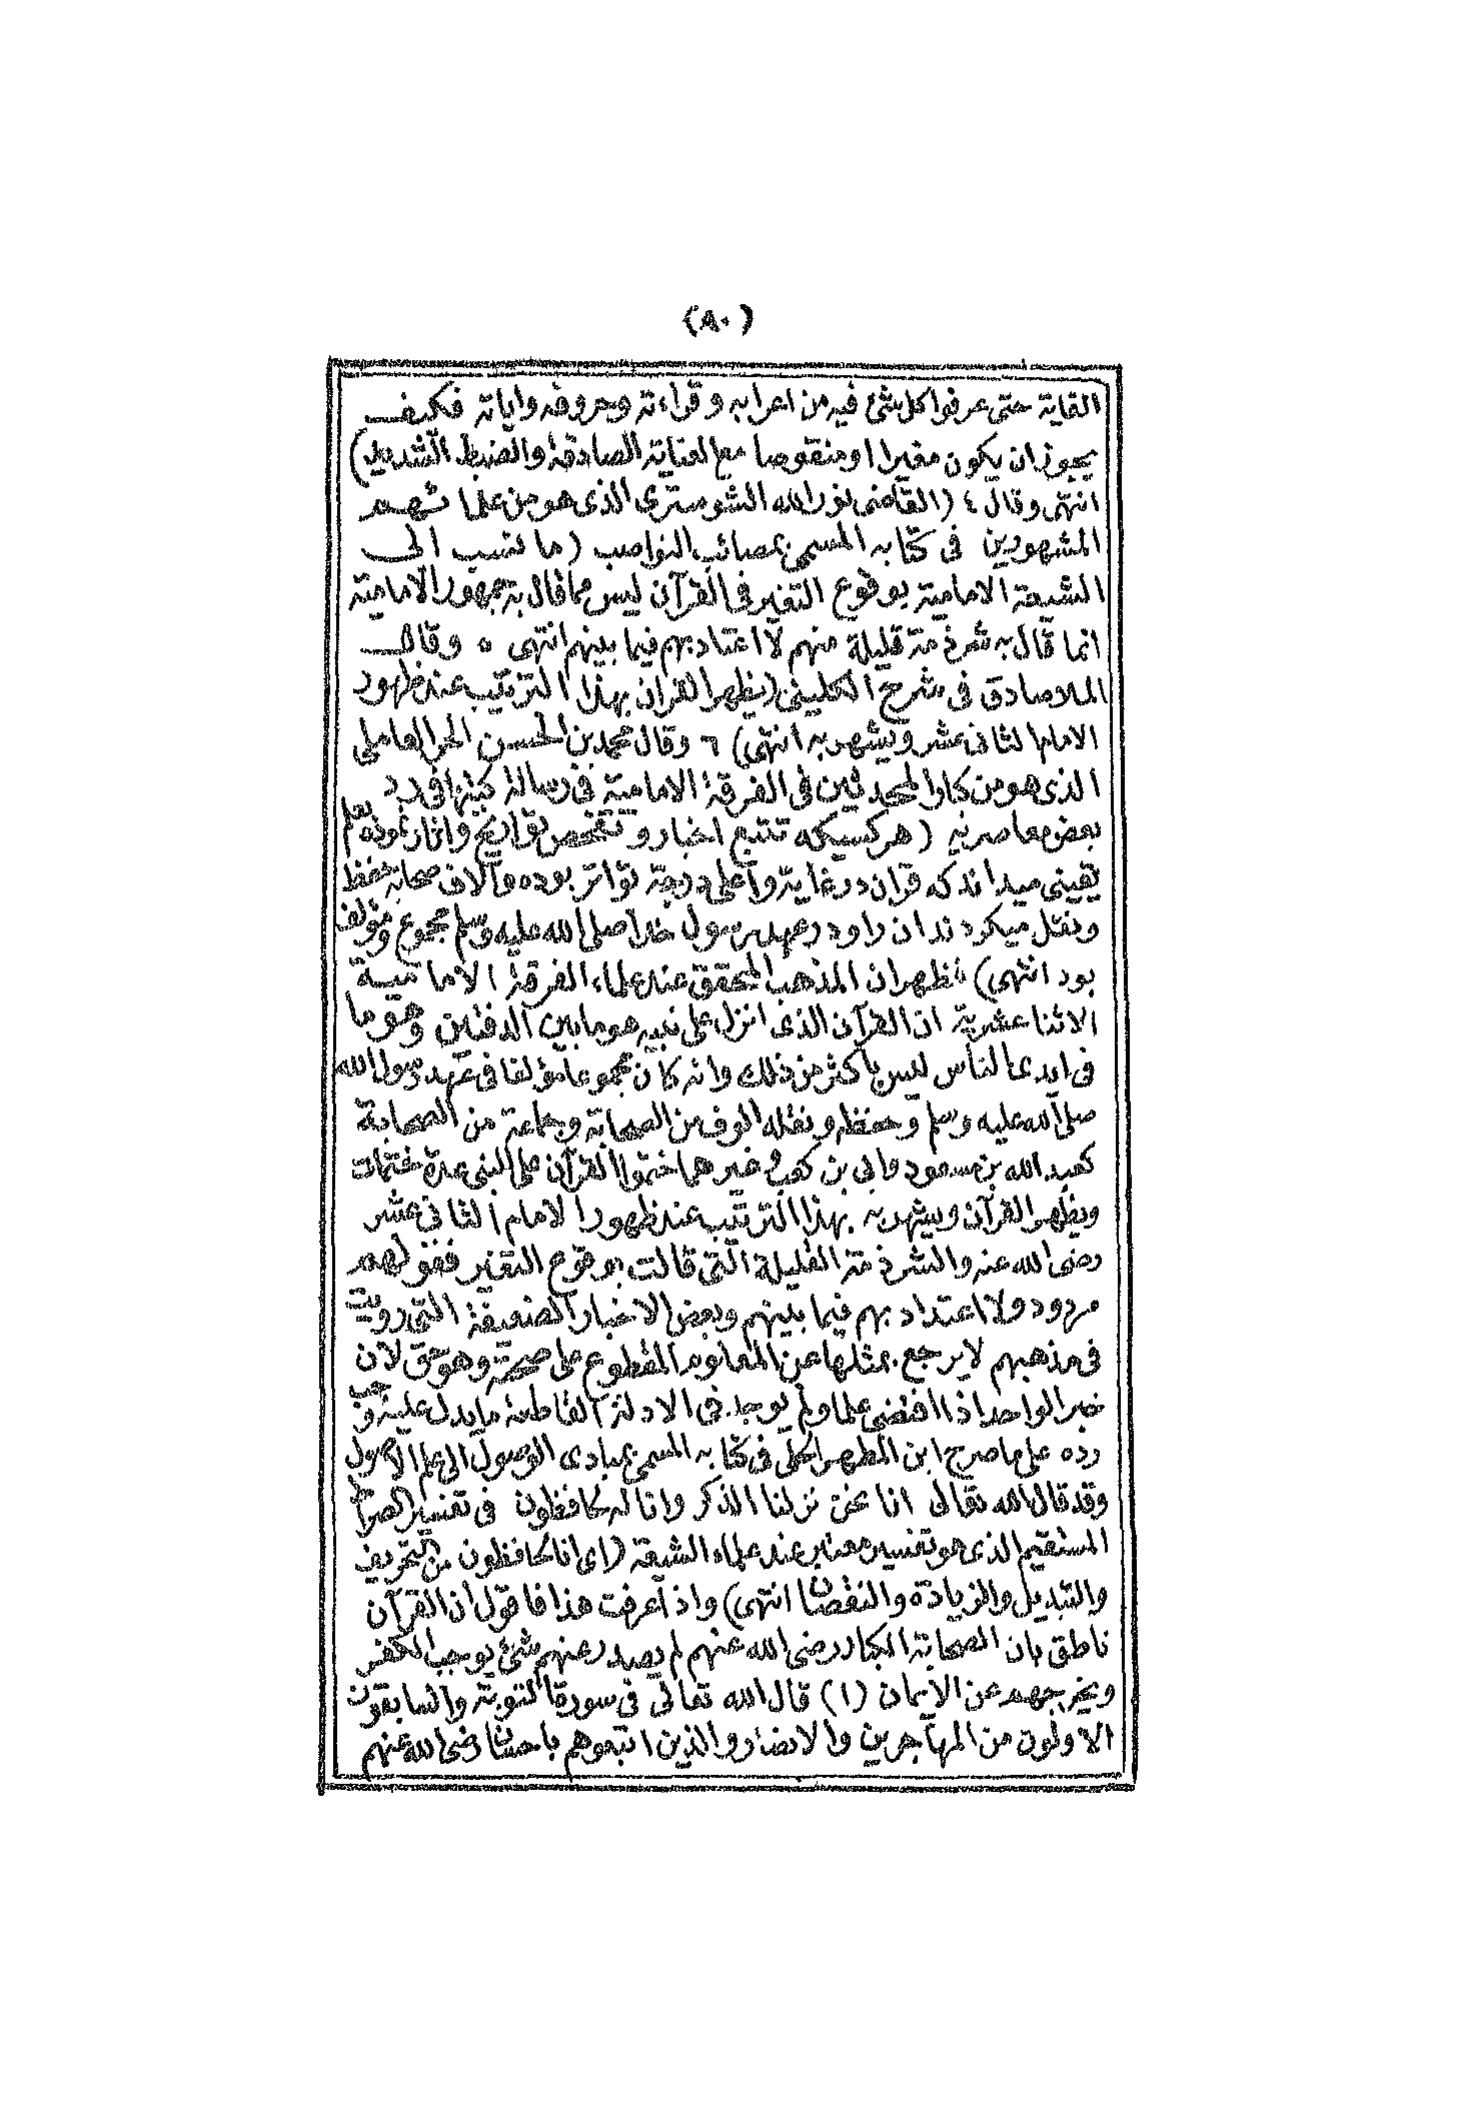 (٨٠)
الغاية حتى عرفوا كل شئ فيه من اعرابه وقراءته وحروفه واياته فكيف
يجوز ان يكون مغيرا او منقوصا مع العناية الصادقة والضبط الشديد)
انتهى وقال ٤ (القاضى نور الله الشوسترى الذى هو من علمائهم
المشهورين فى كتابه المسمى بمصائب النواصب (ما نسب الى
الشيعة الامامية بوقوع التغير فى القرآن ليس مما قال به جمهور الامامية
انما قال به شرذمة قليلة منهم لا اعتداد بهم فيما بينهم انتهى ٥ وقال
الملا صادق فى شرح الكلينى (يظهر القران بهذا الترتيب عند ظهور
الامام الثانى عشر ويشهر به انتهى) ٦ وقال محمد بن الحسن الحر العاملى
الذى هو من كبار المحدثين فى الفرقة الامامية فى رسالة كتبها فى رد
بعض معاصريه (هر كسيكه تتبع اخبار وتفحص تواريخ واثار نموده بعلم
يقينى ميداند كه قران در غاية واعلى درجة تواتر بوده والاف صحابه حفظ
ونقل ميكردند ان را ودر عهد رسول خدا صلى الله عليه وسلم مجموع ومؤلف
بود انتهى) فظهر ان المذهب المحقق عند علماء الفرقة الامامية
الاثنا عشرية ان القرآن الذى انزل على نبيه هو ما بين الدفتين وهو ما
فى ايدى الناس ليس باكثر من ذلك وانه كان مجموعا مؤلفا فى عهد رسول الله
صلى الله عليه وسلم وحفظه ونقله الوف من الصحابة وجماعة من الصحابة
كعبد الله بن مسعود وابى بن كعب وغيرهما ختموا القرآن على النبى عدة ختمات
ويظهر القرآن ويشهر به بهذا الترتيب عند ظهور الامام الثانى عشر
رضى الله عنه والشرذمة القليلة التى قالت بوقوع التغير فقولهم
مردود ولا اعتداد بهم فيما بينهم وبعض الاخبار الضعيفة التى رويت
فى مذهبهم لا يرجع بمثلها عن المعلوم المقطوع على صحته وهو حق لان
خبر الواحد اذا اقتضى علما ولم يوجد فى الادلة القاطعة ما يدل عليه وجب
رده على ما صرح ابن المطهر الحلى فى كتابه المسمى بمبادى الوصول الى علم الاصول
وقد قال الله تعالى انا نحن نزلنا الذكر وانا له لحافظون فى تفسير الصراط
المستقيم الذى هو تفسير معتبر عند علماء الشيعة (اى انا لحافظون من التحريف
والتبديل والزيادة والنقصان انتهى) واذا عرفت هذا فاقول ان القرآن
ناطق بان الصحابة الكبار رضى الله عنهم لم يصدر عنهم شئ يوجب الكفر
ويخرجهم عن الايمان (١) قال الله تعالى فى سورة التوبة والسابقون
الاولون من المهاجرين والانصار والذين اتبعوهم باحسان رضى الله عنهم